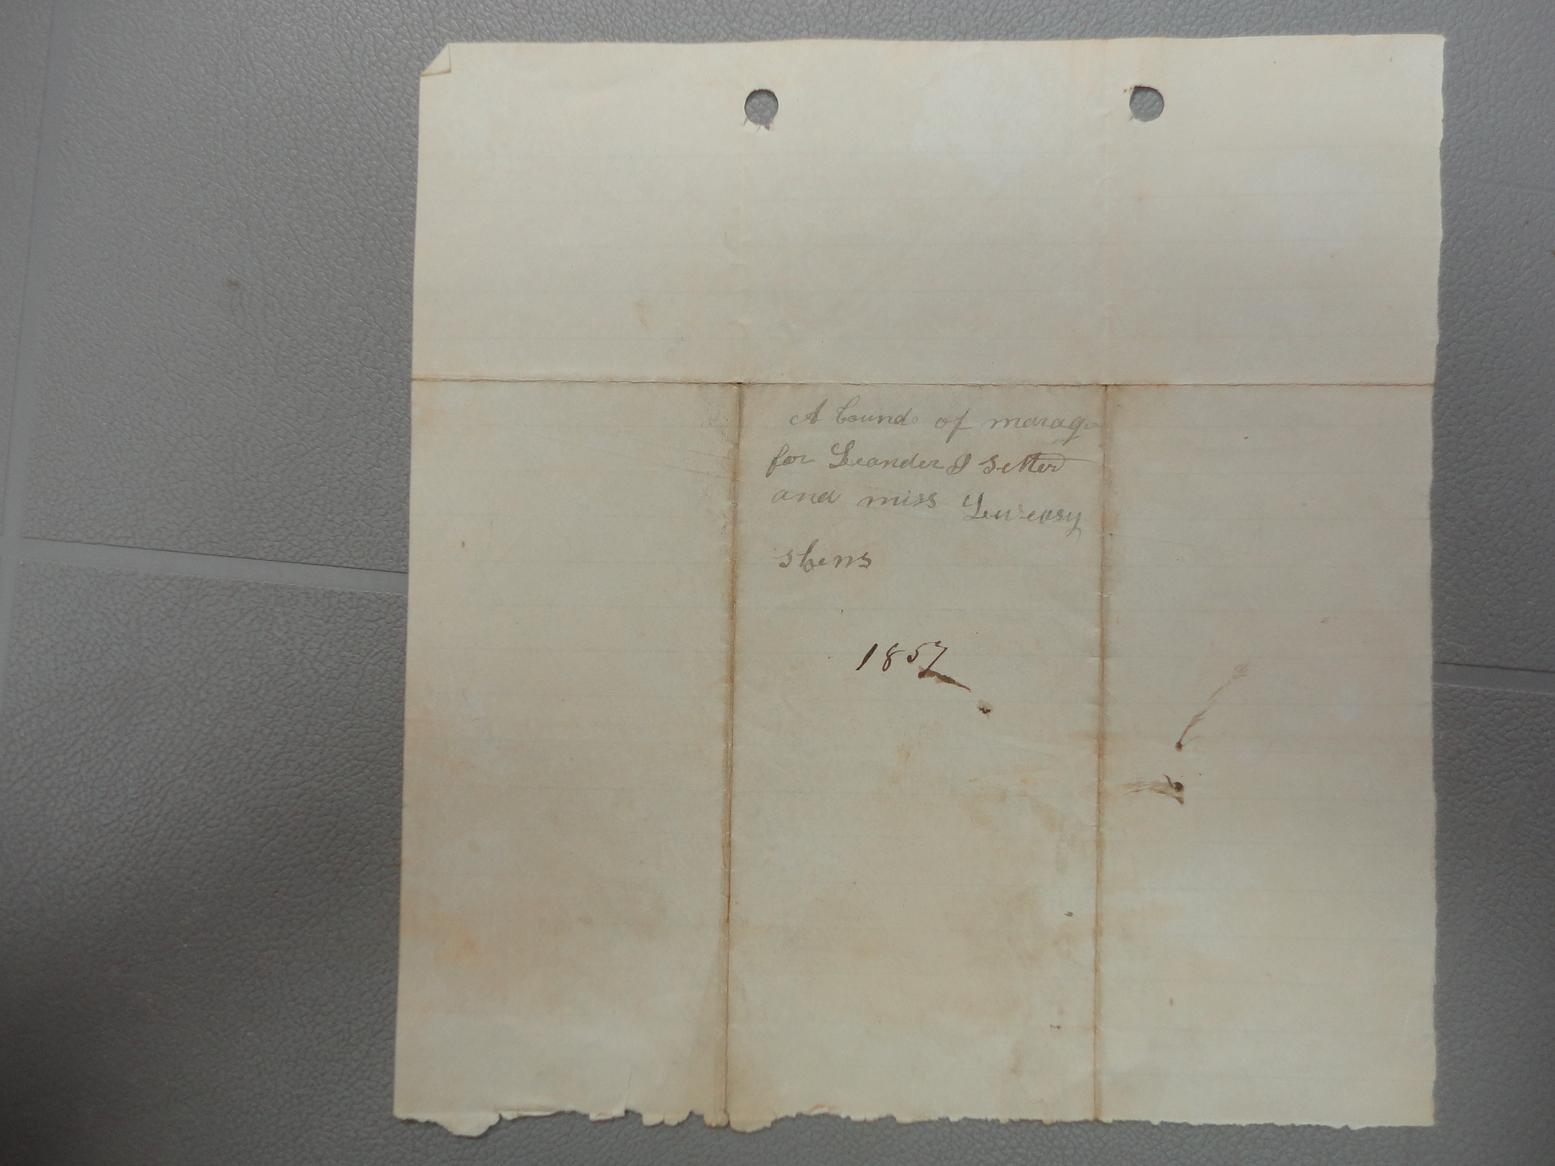 A bound of marag
for Leander J Setter
and miss
Stens
1857